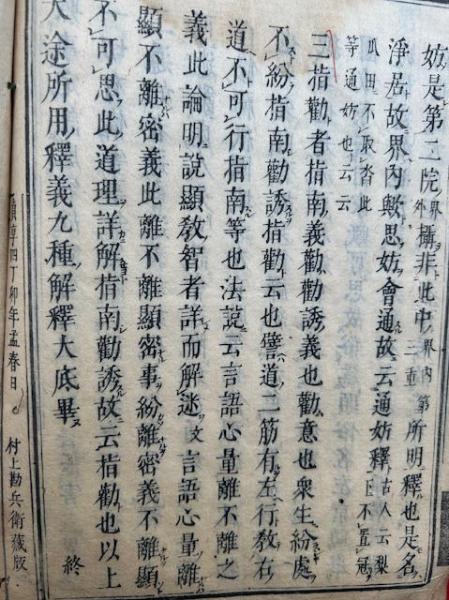 妨是第二院界外攝非此中界内第三重所明釋也是名
淨居故界内歟思妨會通故云通妨釋古人云梨下不置冠
瓜田不取沓此等通妨也云云
三指勸者指南義勸勸誘義也勸意也衆生紛處
不紛指南勸誘指勸云也譬道二筋有左行教右
道不可行指南等也法說云言語心量離不離之
義此論明說顯教智者詳而解迷文言語心量離
顯不離密義此離不離顯密事紛離密義不離顯
不可思此道理詳解指南勸誘故云指勸也以上
大途所用釋義九種解釋大底畢
四丁卯年孟春日
村上勘兵衛藏版
終